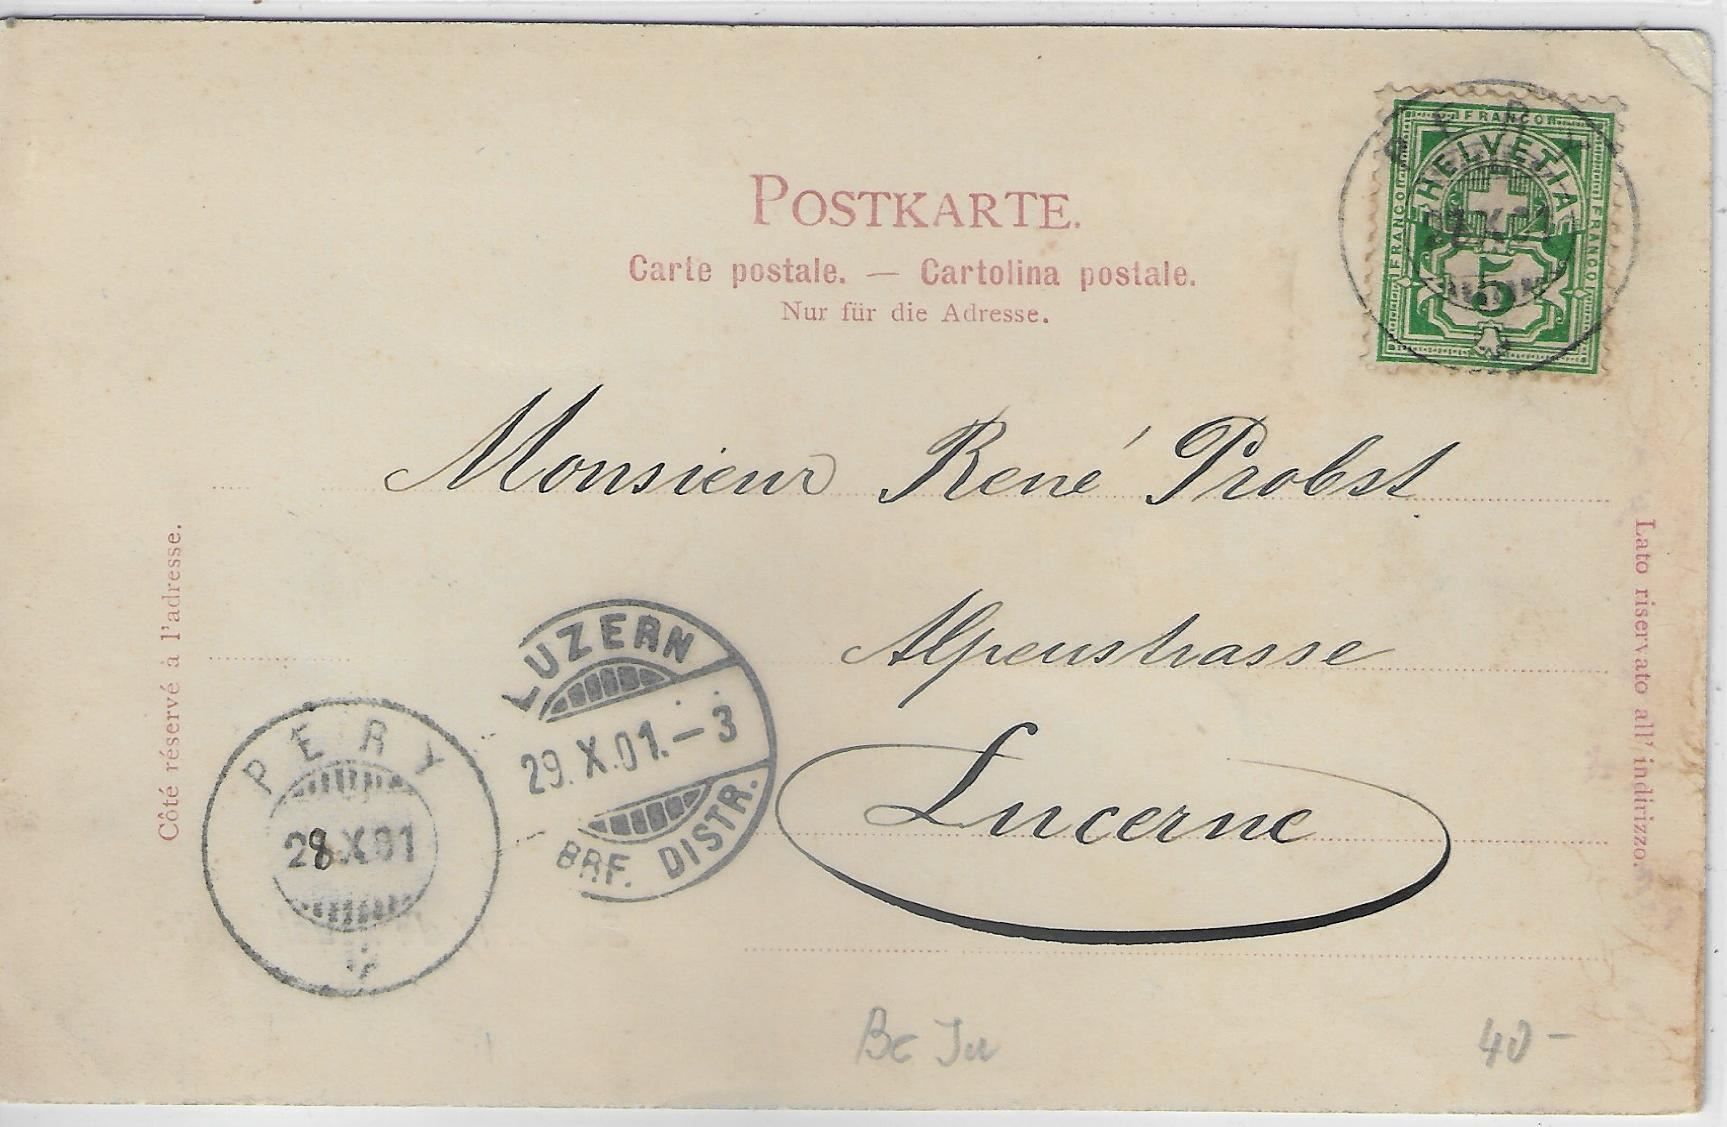 POSTKARTE.
Carte postale. — Cartolina postale.
Nur für die Adresse.
FRANCO
FRANCO
FRANCO
HELVETIA
5
Monsieur René Probst
Alpenstrasse
Lucerne
Côté réservé à l'adresse.
Lato riservato all' indirizzo.
LUZERN
29.X.01.–3
BRF. DISTR.
PERY
28.X.01
40-